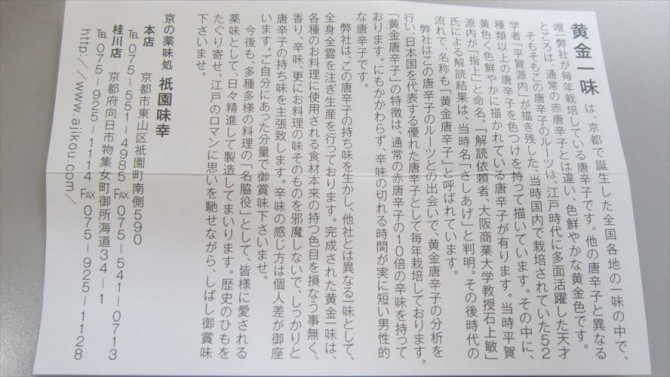 黄金一味 は、京都で誕生した全国各地の一味の中で、
唯一弊社が毎年栽培している唐辛子です。他の唐辛子と異なる
ところは、通常の赤唐辛子とは違い、色鮮やかな黄金色です。
そもそもこの唐辛子のルーツは、江戸時代に多面活躍した天才
学者「平賀源内」が描き残した、当時国内で栽培されていた52
種類以上の唐辛子を色づけを持って描いています。その中に、
黄色く色鮮やかに描かれている唐辛子が有ります。当時平賀
源内が「指上」と命名。「解読依頼者、大阪商業大学教授石上敏」
氏による解読結果は、当時名「さしあげ」と判明。その後時代の
流れで、名称も「黄金唐辛子」と呼ばれています。
弊社はこの唐辛子のルーツとの出会いで、黄金唐辛子の分析を
行い、日本国を代表する優れた唐辛子として毎年栽培しております。
「黄金唐辛子」の特徴は、通常の赤唐辛子の10倍の辛味を持って
おります。にもかかわらず、辛味の切れる時間が実に短い男性的
な唐辛子です。
弊社は、この唐辛子の持ち味を生かし、他社とは異なる一味として、
全身全霊を注ぎ生産を行っております。完成された黄金一味は、
各種のお料理に使用される食材本来の持つ色目を損なう事無く、
香り、辛味、更にお料理の味そのものを邪魔しないで、しっかりと
唐辛子の持ち味を主張致します。辛味の感じ方は個人差が御座
います。ご自分にあった分量で御賞味下さいませ。
今後も、多種多様の料理の「名脇役」として、皆様に愛される
薬味として、日々精進して製造してまいります。歴史のひもを
たぐり寄せ、江戸のロマンに思いを馳せながら、しばし御賞味
下さいませ。
京の薬味処 祇園味幸
本店 京都市東山区祇園町南側590
℡075-551-4985 FAX075-541-0713
桂川店 京都府向日市物集女町御所海道34-1
℡075-925-1114 FAX075-925-1128
http://www.ajikou.com/